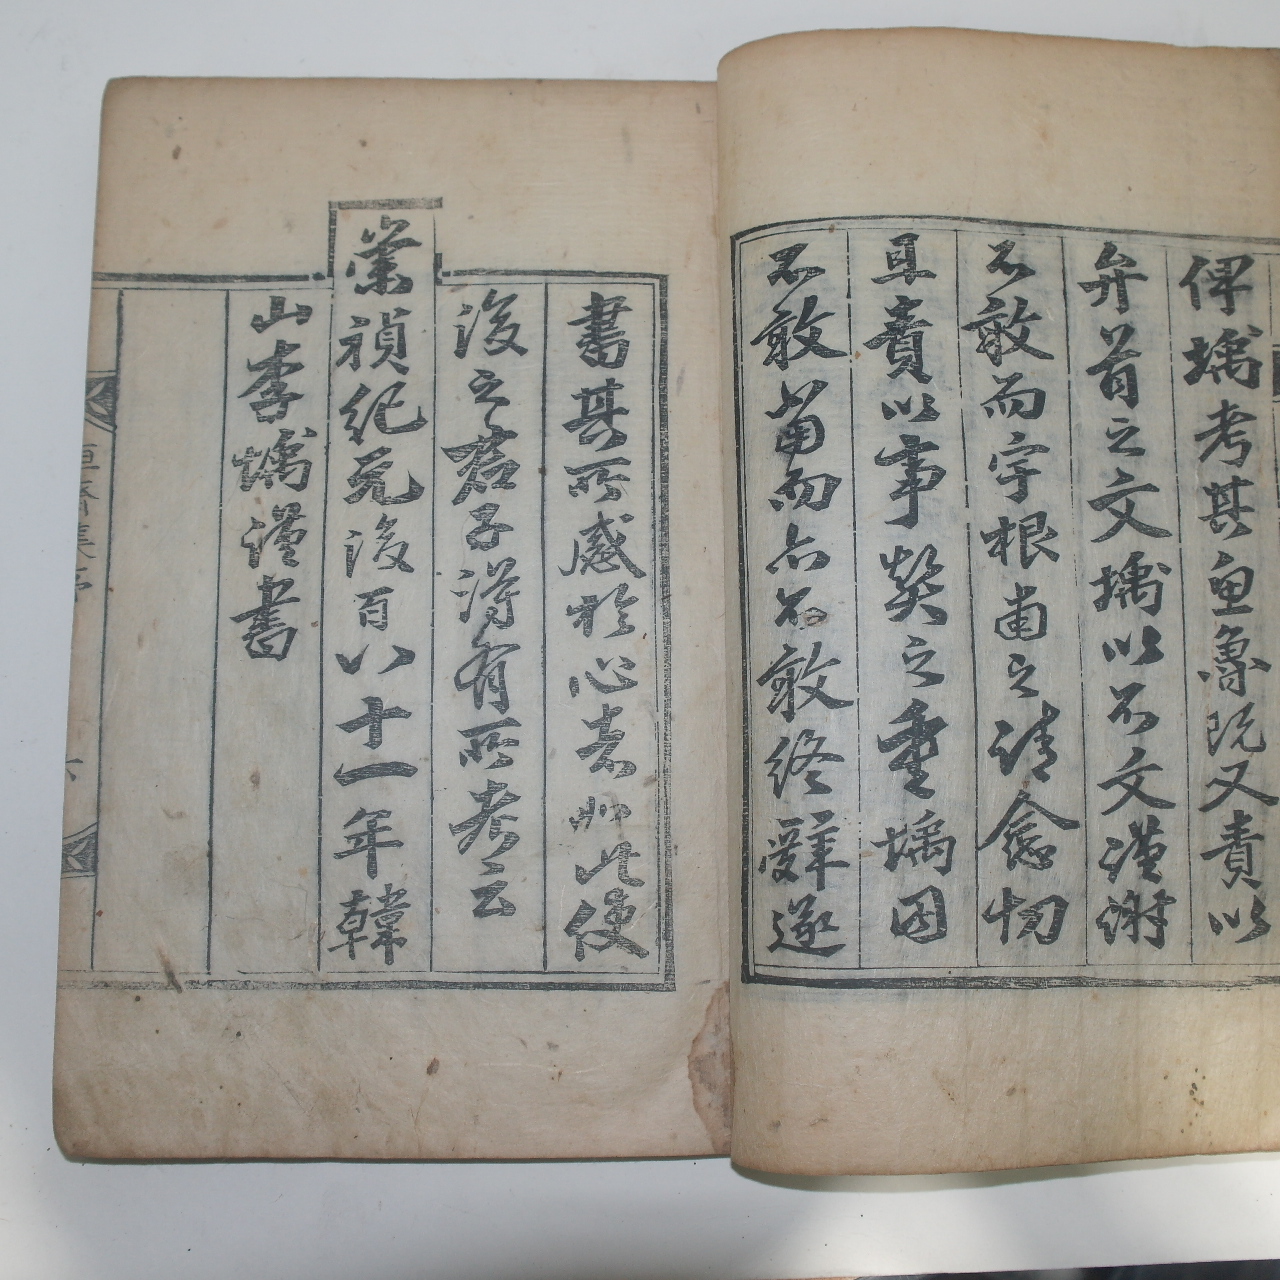 俾㙖考其魚魯既又責以
弁首之文㙖以不文謹謝
不敢而宇根甫之請愈切
且責以事契之重㙖因
不敢當而亦不敢終辭遂
書其所感於心者如此使
後之君子得有所考云
崇禎紀元後百八十一年韓
山李㙖謹書